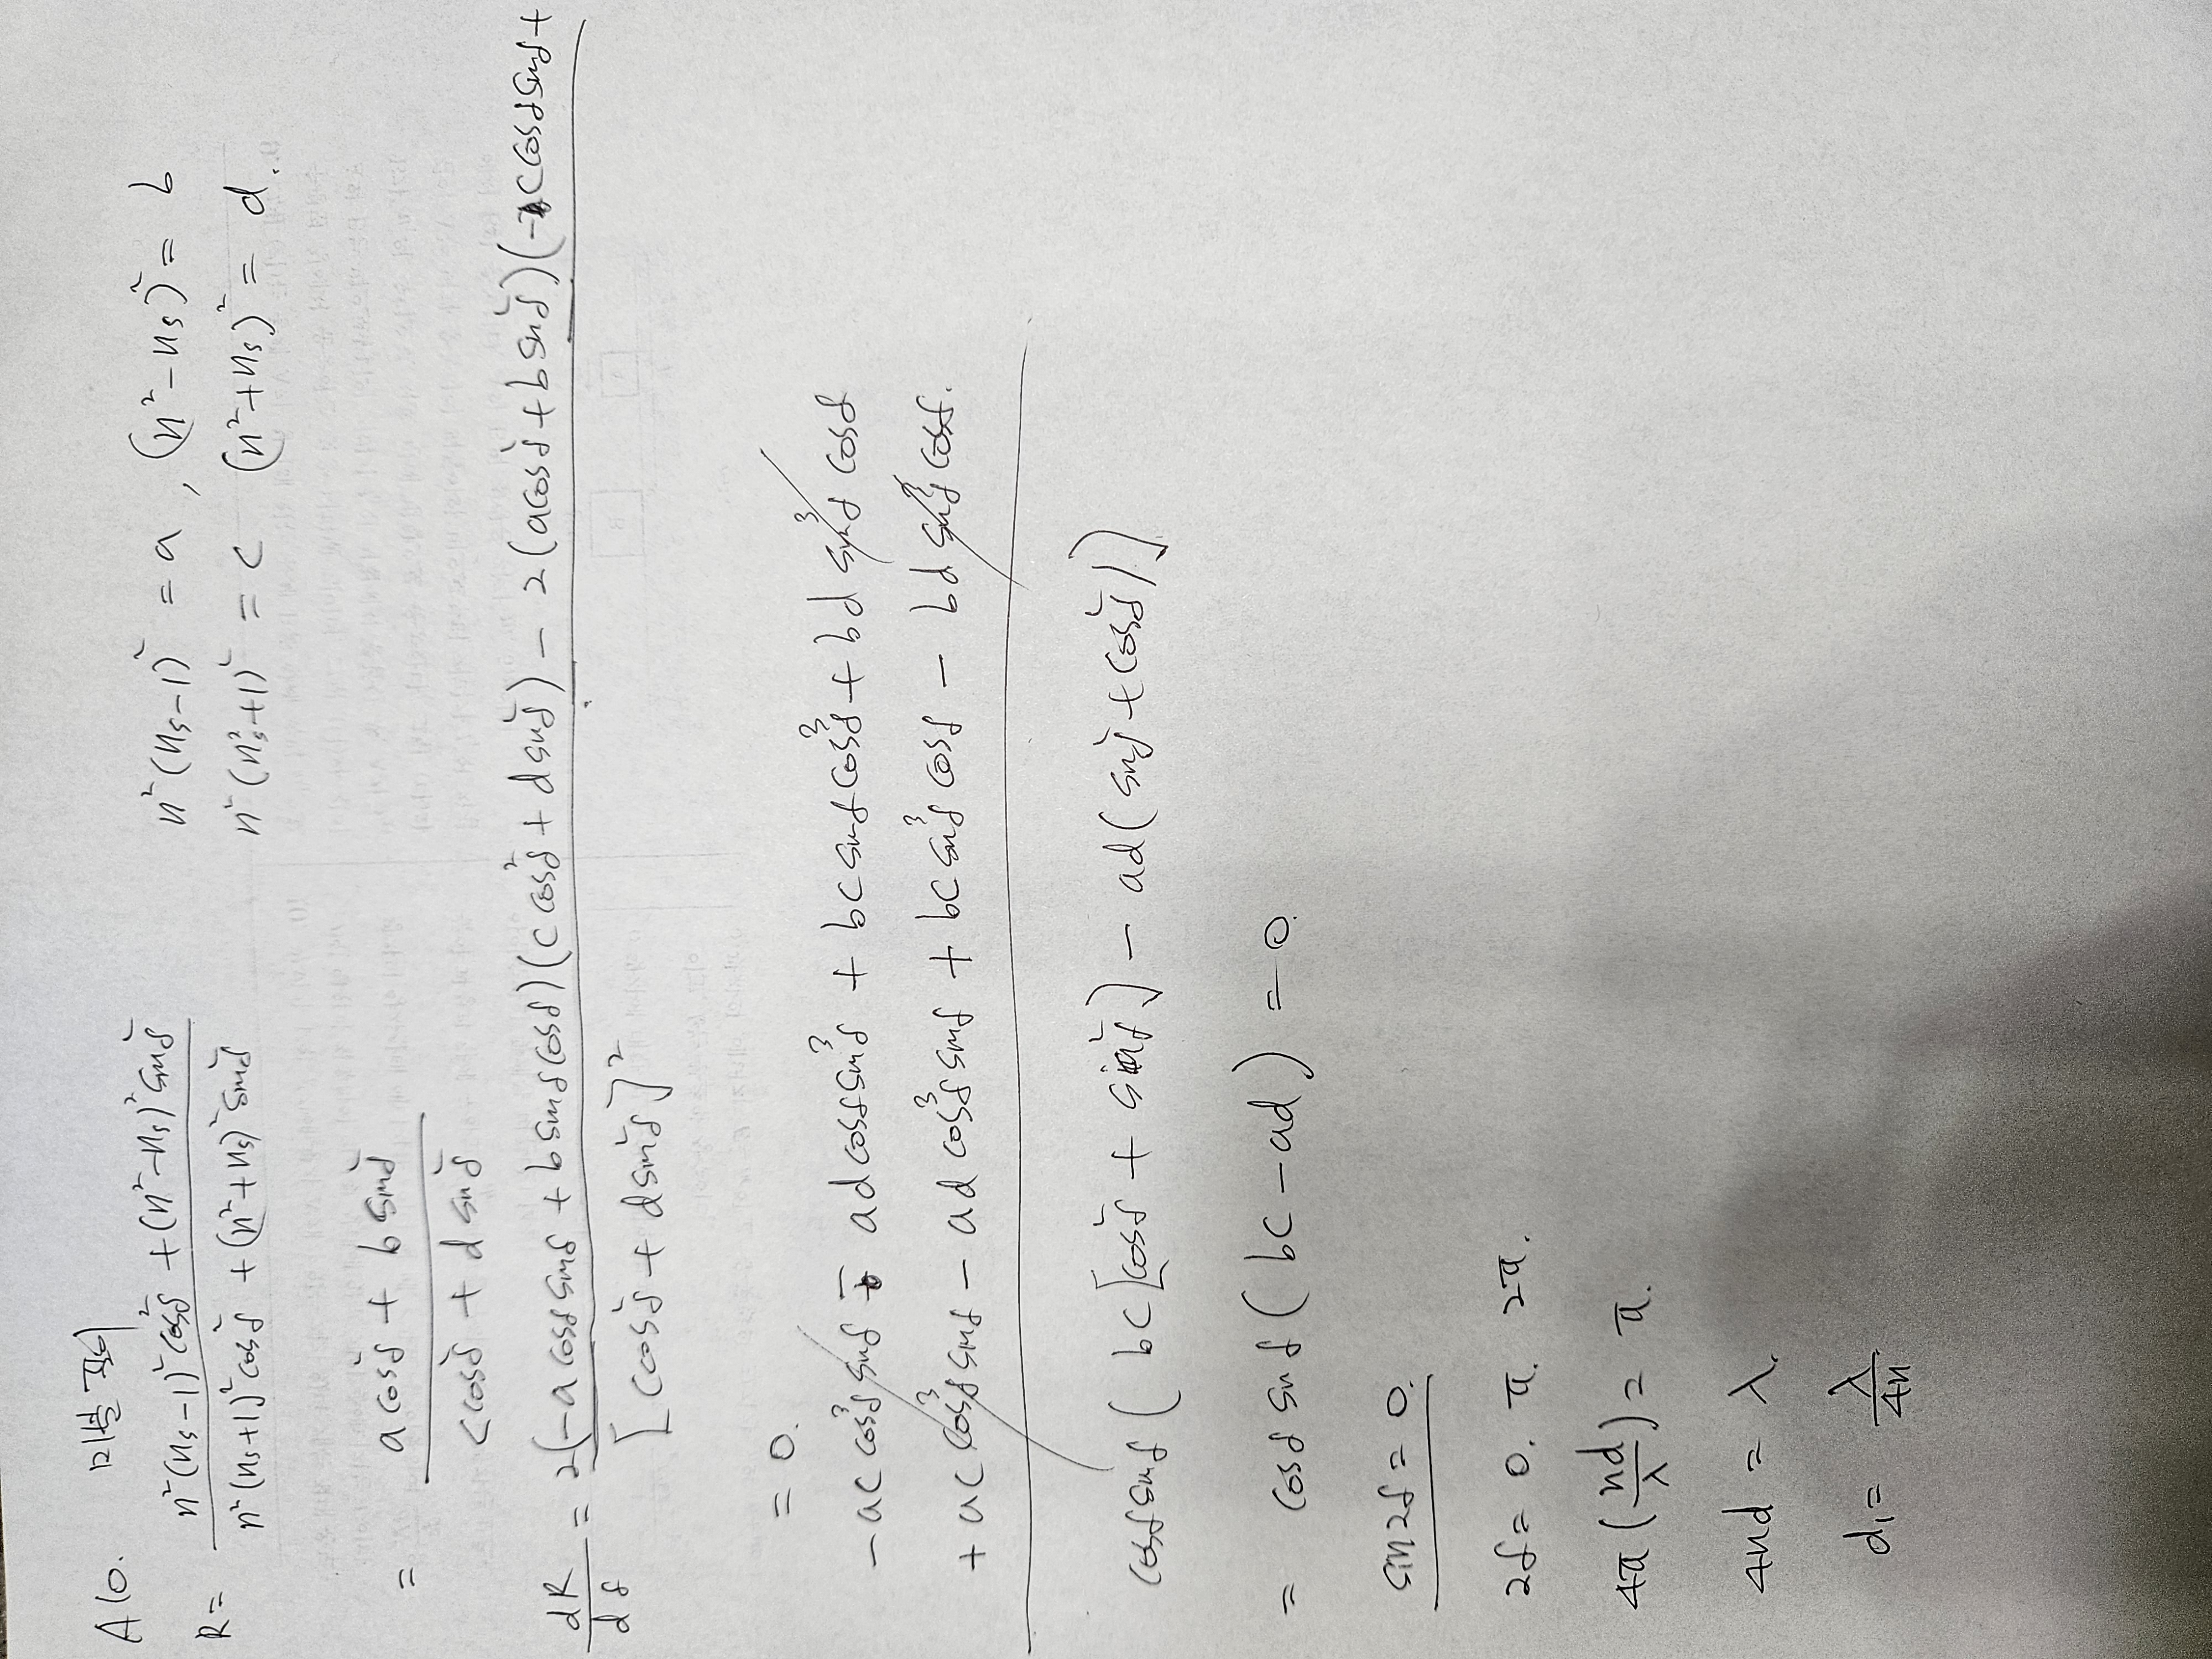 A10. 미분 쪽이
R = n²(ns-1)²cos²δ + (n²-ns)²sin²δ / n²(ns+1)²cos²δ + (n²+ns)²sin²δ
n²(ns-1)² = a, (n²-ns)² = b
n²(ns²+1)² = c (n²+ns)² = d.
= acos²δ + bsin²δ / ccos²δ + dsin²δ
dR/dδ = 2(-acosδsinδ + bsinδcosδ)(ccos²δ + dsin²δ) - 2(acos²δ + bsin²δ)(-ccosδsinδ+ / [cos²δ + dsin²δ]²
= 0.
-accos³δsinδ - adcosδsin³δ + bcsinδcos³δ + bdsin³δcosδ
+accos³δsinδ - adcos³δsinδ + bcsin³δcosδ - bdsin³δcosδ.
cosδsinδ(bc[cos²δ + sin²δ] - ad(sin²δ + cos²δ))
= cosδsinδ(bc - ad) = 0.
sin2δ = 0.
2δ = 0. π. 2π.
4π(nd/λ) = π.
4nd = λ.
d₁ = λ/4n